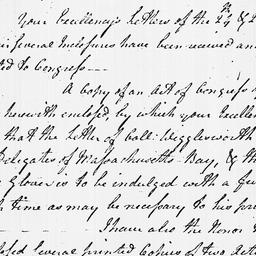 Your Excellency's Letters of the 24th & 2
several Inclosures have been received an
ted to Congress—
A Copy of an Act of Congress
herewith enclosed, by which your Excellen
that the Letter of Coll: Wigglesworth
Delegates of Massachusetts-Bay, & th
Glover is to be indulged with a Fur
time as may be necessary to his pri
I have also the Honor
several printed Copies of two Acts